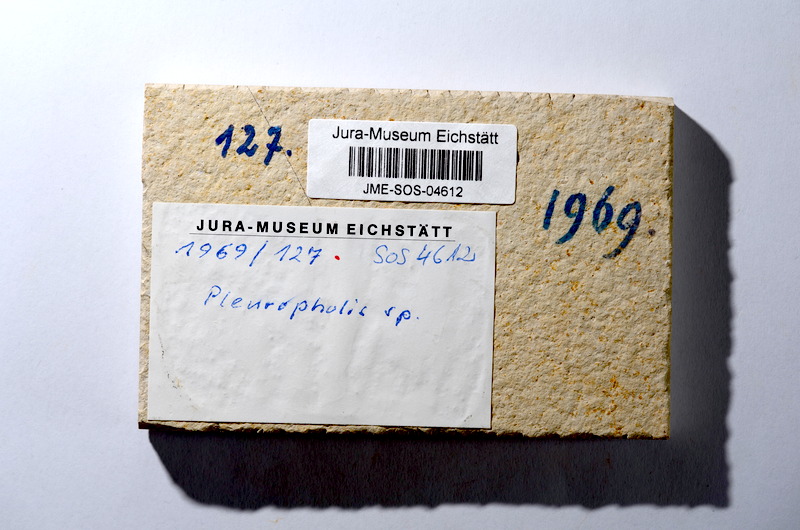 127.
Jura-Museum Eichstätt
JME-SOS-04612
1969.
JURA-MUSEUM EICHSTÄTT
1969/127. SOS 4612
Pleuropholis sp.